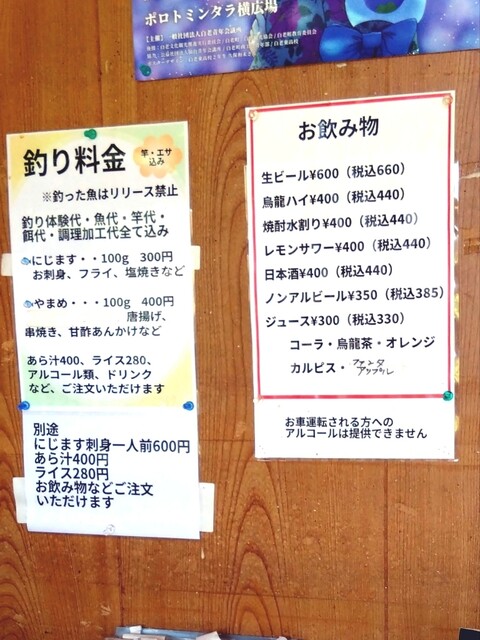 ポロトミンタラ横広場
釣り料金
竿・エサ
込み
※釣った魚はリリース禁止
釣り体験代・魚代・竿代・
餌代・調理加工代全て込み
にじます・・100g 300円
お刺身、フライ、塩焼きなど
やまめ・・・100g 400円
唐揚げ、
串焼き、甘酢あんかけなど
あら汁400、ライス280、
アルコール類、ドリンク
など、ご注文いただけます
別途
にじます刺身一人前600円
あら汁400円
ライス280円
お飲み物などご注文
いただけます
お飲み物
生ビール¥600（税込660）
烏龍ハイ¥400（税込440）
焼酎水割り¥400（税込440）
レモンサワー¥400（税込440）
日本酒¥400（税込440）
ノンアルビール¥350（税込385）
ジュース¥300（税込330）
コーラ・烏龍茶・オレンジ
カルピス・ファンタ
アップル
お車運転される方への
アルコールは提供できません